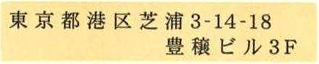 東京都港区芝浦3-14-18
豊穣ビル3F